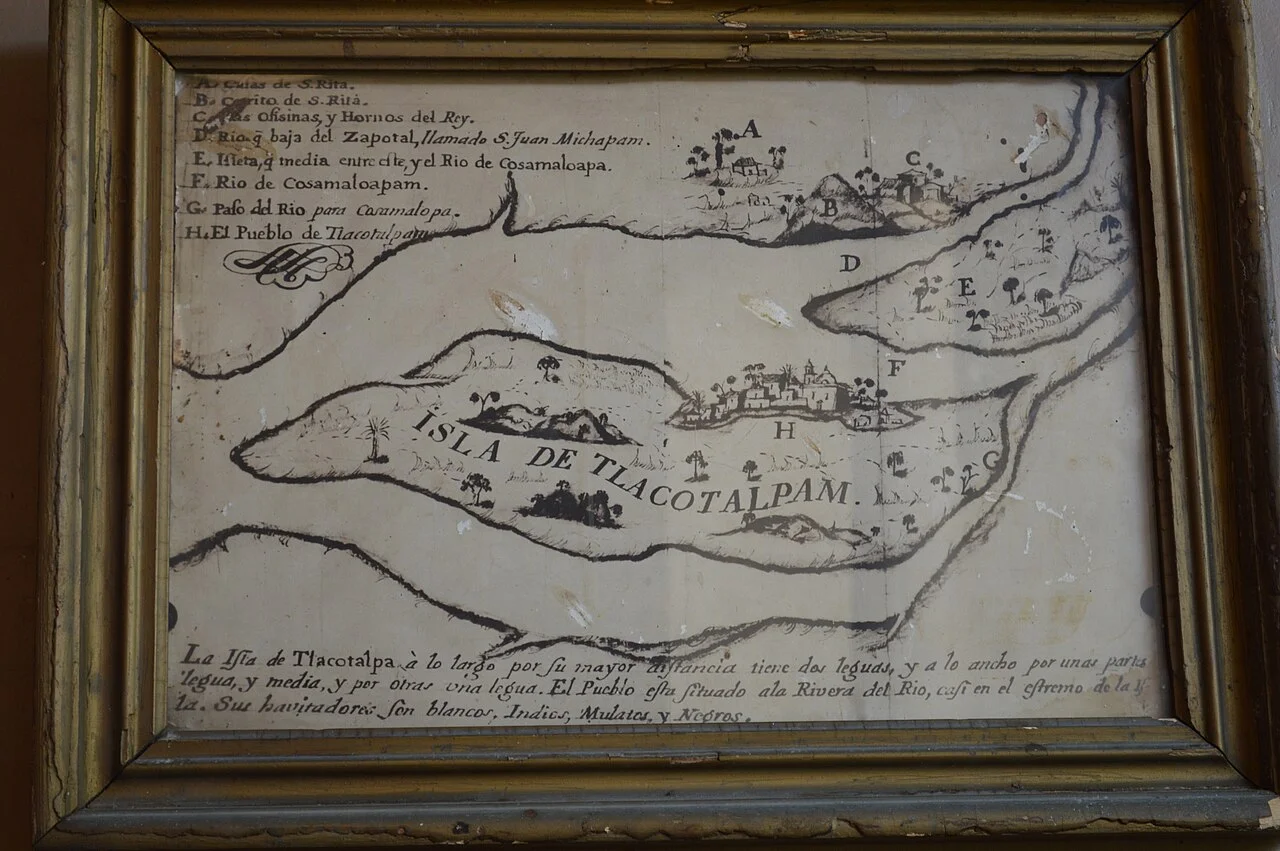 A. Casas de S. Rita.
B. Cerrito de S. Rita.
C. Las Ofisinas, y Hornos del Rey.
D. Rio q̃ baja del Zapotal, llamado S. Juan Michapam.
E. Isleta, q̃ media entre este, y el Rio de Cosamaloapa.
F. Rio de Cosamaloapam.
G. Paso del Rio para Cosamalopa.
H. El Pueblo de Tlacotalpam
A
C
B
D
E
F
H
G
ISLA DE TLACOTALPAM.
La Isla de Tlacotalpa à lo largo por su mayor distancia tiene dos leguas, y a lo ancho por unas partes
legua, y media, y por otras una legua. El Pueblo esta situado a la Rivera del Rio, casi en el estremo de la Is-
la. Sus havitadores son blancos, Indios, Mulatos, y Negros.